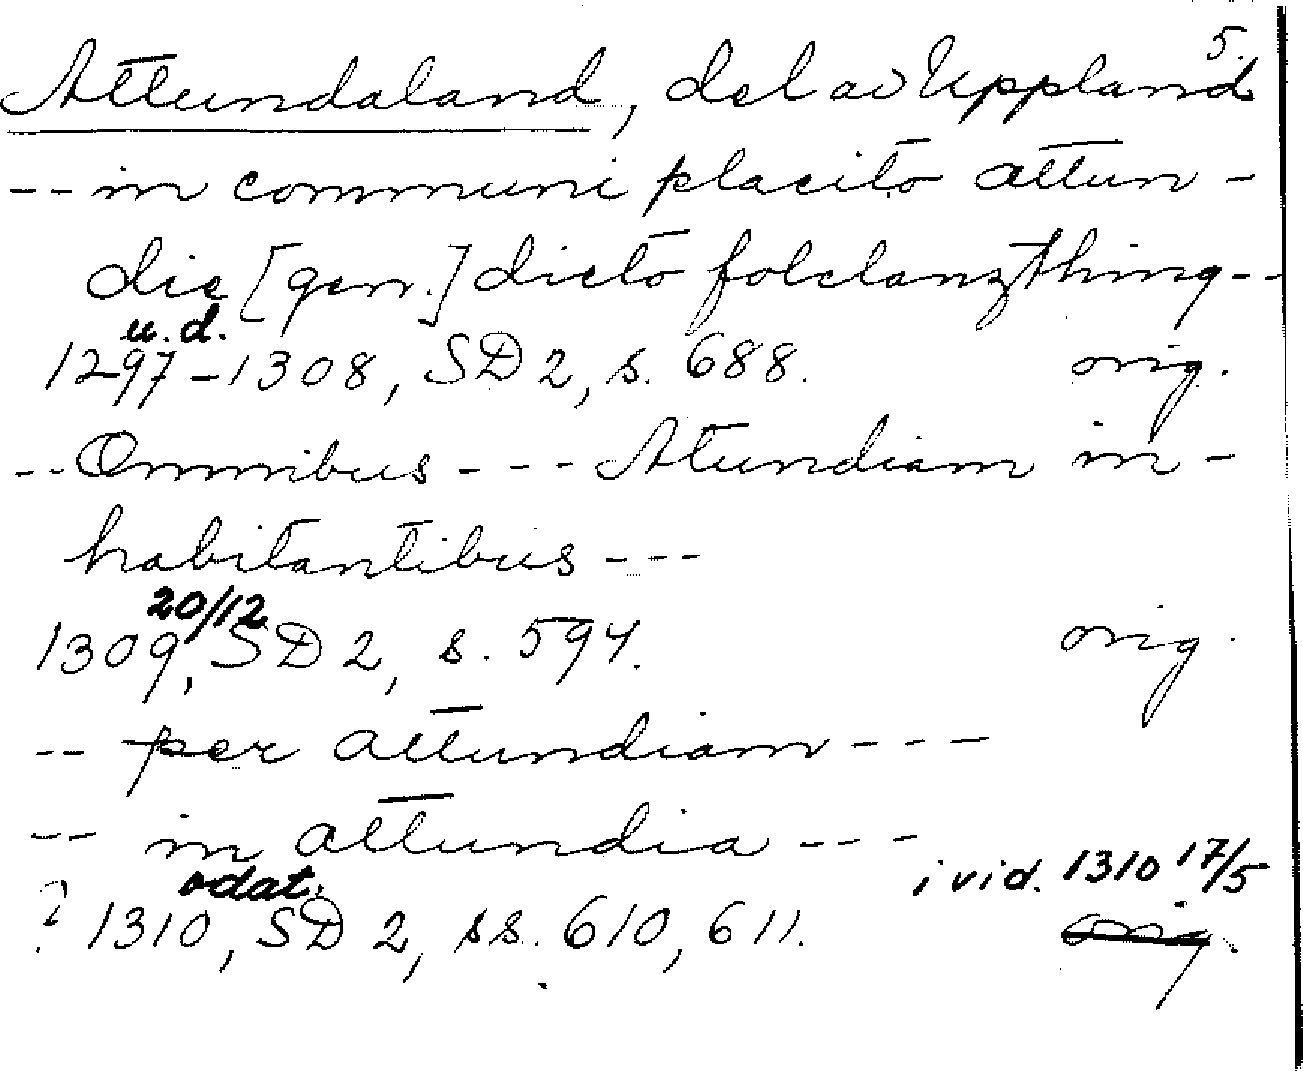 5.
Attundaland, del av Uppland
-- in communi placito attun-
die [gen.] dicto folclanzthing--
u.d.
1297-1308, SD 2, s. 688. orig.
-- Omnibus --- Atundiam in-
habitantibus ---
20/12
1309, SD 2, s. 594. orig.
-- per attundiam ---
-- in attundia ---
odat. i vid. 1310 17/5
? 1310, SD 2, ss. 610, 611. orig.